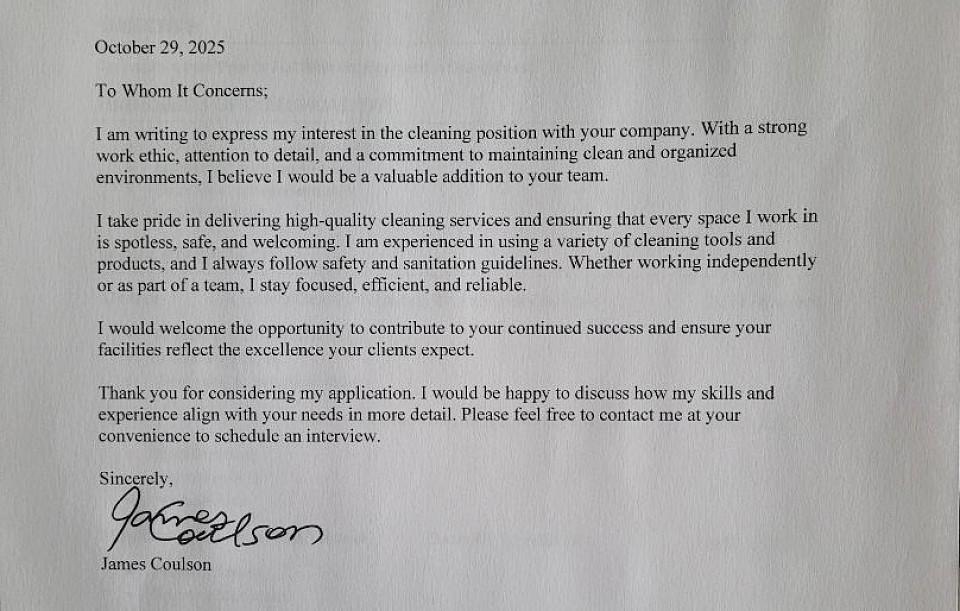 October 29, 2025
To Whom It Concerns;
I am writing to express my interest in the cleaning position with your company. With a strong
work ethic, attention to detail, and a commitment to maintaining clean and organized
environments, I believe I would be a valuable addition to your team.
I take pride in delivering high-quality cleaning services and ensuring that every space I work in
is spotless, safe, and welcoming. I am experienced in using a variety of cleaning tools and
products, and I always follow safety and sanitation guidelines. Whether working independently
or as part of a team, I stay focused, efficient, and reliable.
I would welcome the opportunity to contribute to your continued success and ensure your
facilities reflect the excellence your clients expect.
Thank you for considering my application. I would be happy to discuss how my skills and
experience align with your needs in more detail. Please feel free to contact me at your
convenience to schedule an interview.
Sincerely,
James
Coulson
James Coulson